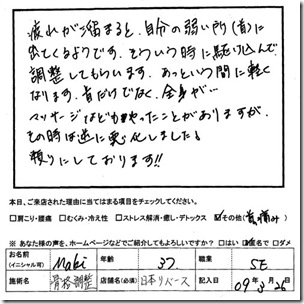 疲れが溜まると、自分の弱い所(首)に
出てくるようです。そういう時に駆け込んで
調整してもらいます。あっという間に軽く
なります。首だけでなく、全身が…
マッサージなどもやったことがありますが、
その時は逆に悪化しました!
頼りにしております!!
本日、ご来店された理由に当てはまる項目をチェックしてください。
□肩こり・腰痛 □むくみ・冷え性 □ストレス解消・癒し・デトックス ☑その他(首痛み)
※ あなた様の声を、ホームページなどでご紹介してもよろしいですか? □はい ☑匿名で □ダメ
お名前 (イニシャル可) Maki 年齢 37 職業 SE
施術名 骨格調整 店舗名(必須) 日本リバース 記入日 09年3月26日